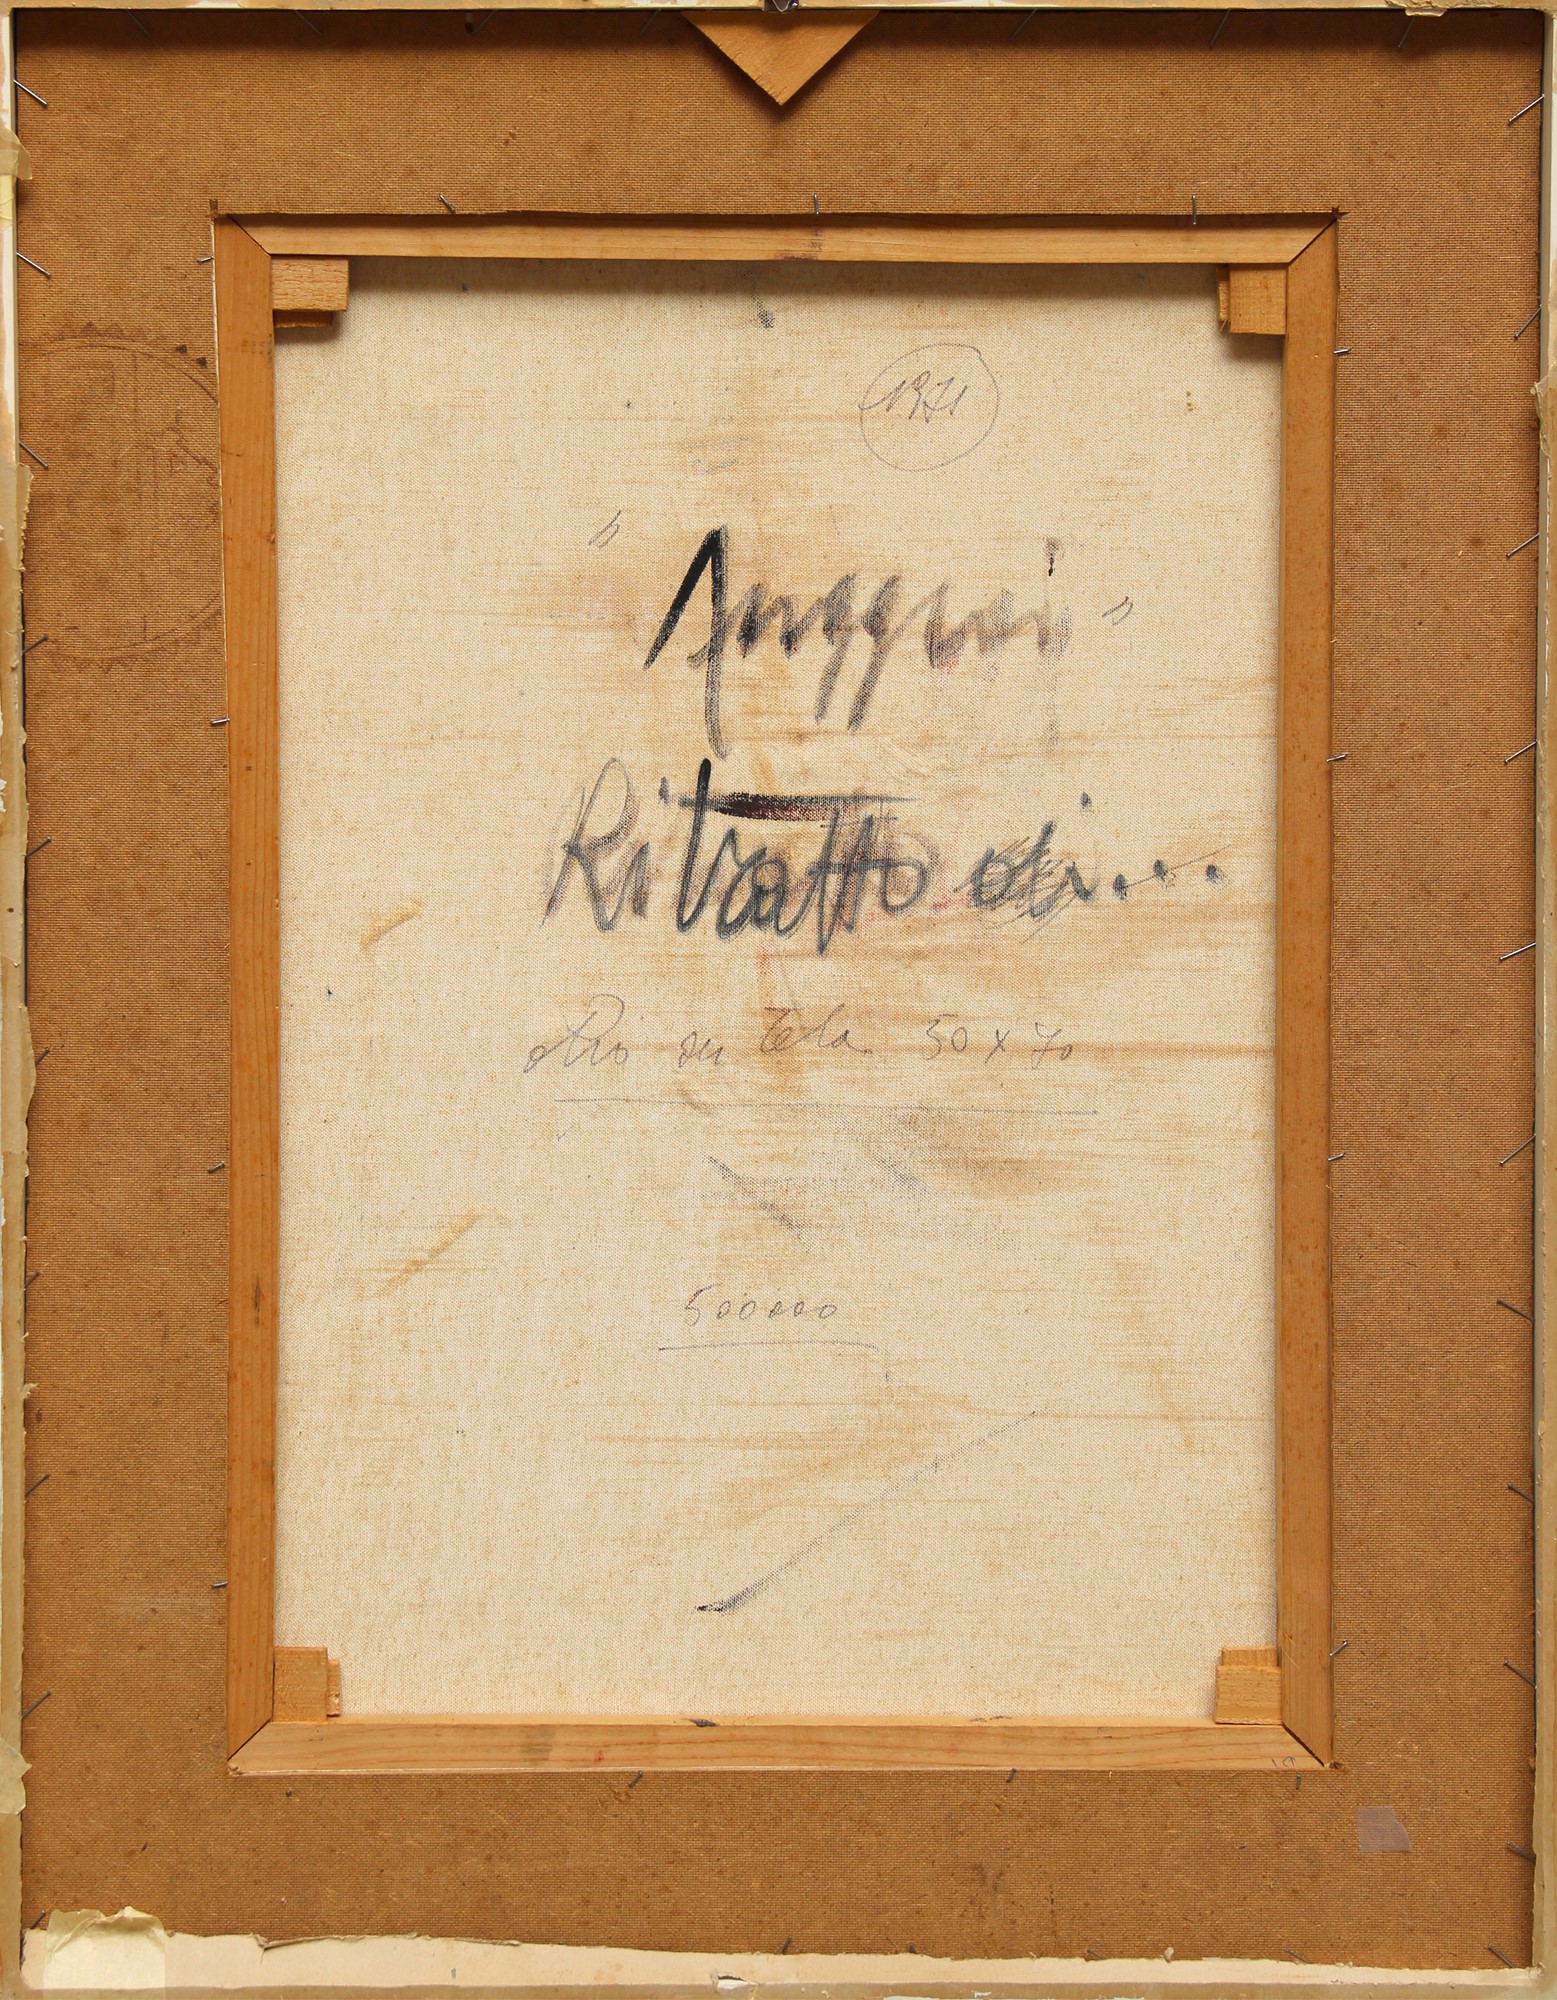 1971
Ritratto di...
olio su tela 50 x 70
500000